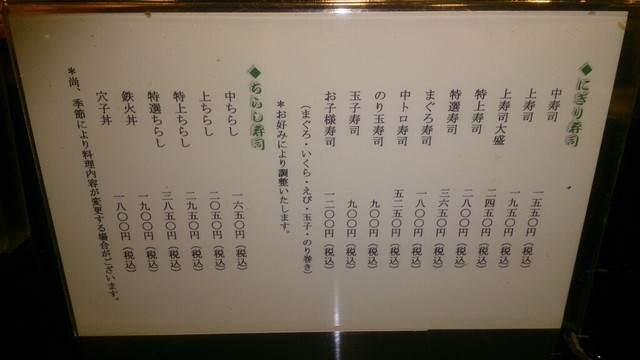 ◆にぎり寿司
中寿司 一五五〇円（税込）
上寿司 一九五〇円（税込）
上寿司大盛 二四五〇円（税込）
特上寿司 二八〇〇円（税込）
特選寿司 三六五〇円（税込）
まぐろ寿司 一八〇〇円（税込）
中トロ寿司 五二五〇円（税込）
のり玉寿司 九〇〇円（税込）
玉子寿司 九〇〇円（税込）
お子様寿司 一二〇〇円（税込）
（まぐろ・いくら・えび・玉子・のり巻き）
＊お好みにより調整いたします。
◆ちらし寿司
中ちらし 一六五〇円（税込）
上ちらし 二〇五〇円（税込）
特上ちらし 二九五〇円（税込）
特選ちらし 三八五〇円（税込）
鉄火丼 一九〇〇円（税込）
穴子丼 一八〇〇円（税込）
＊尚、季節により料理内容が変更する場合がございます。